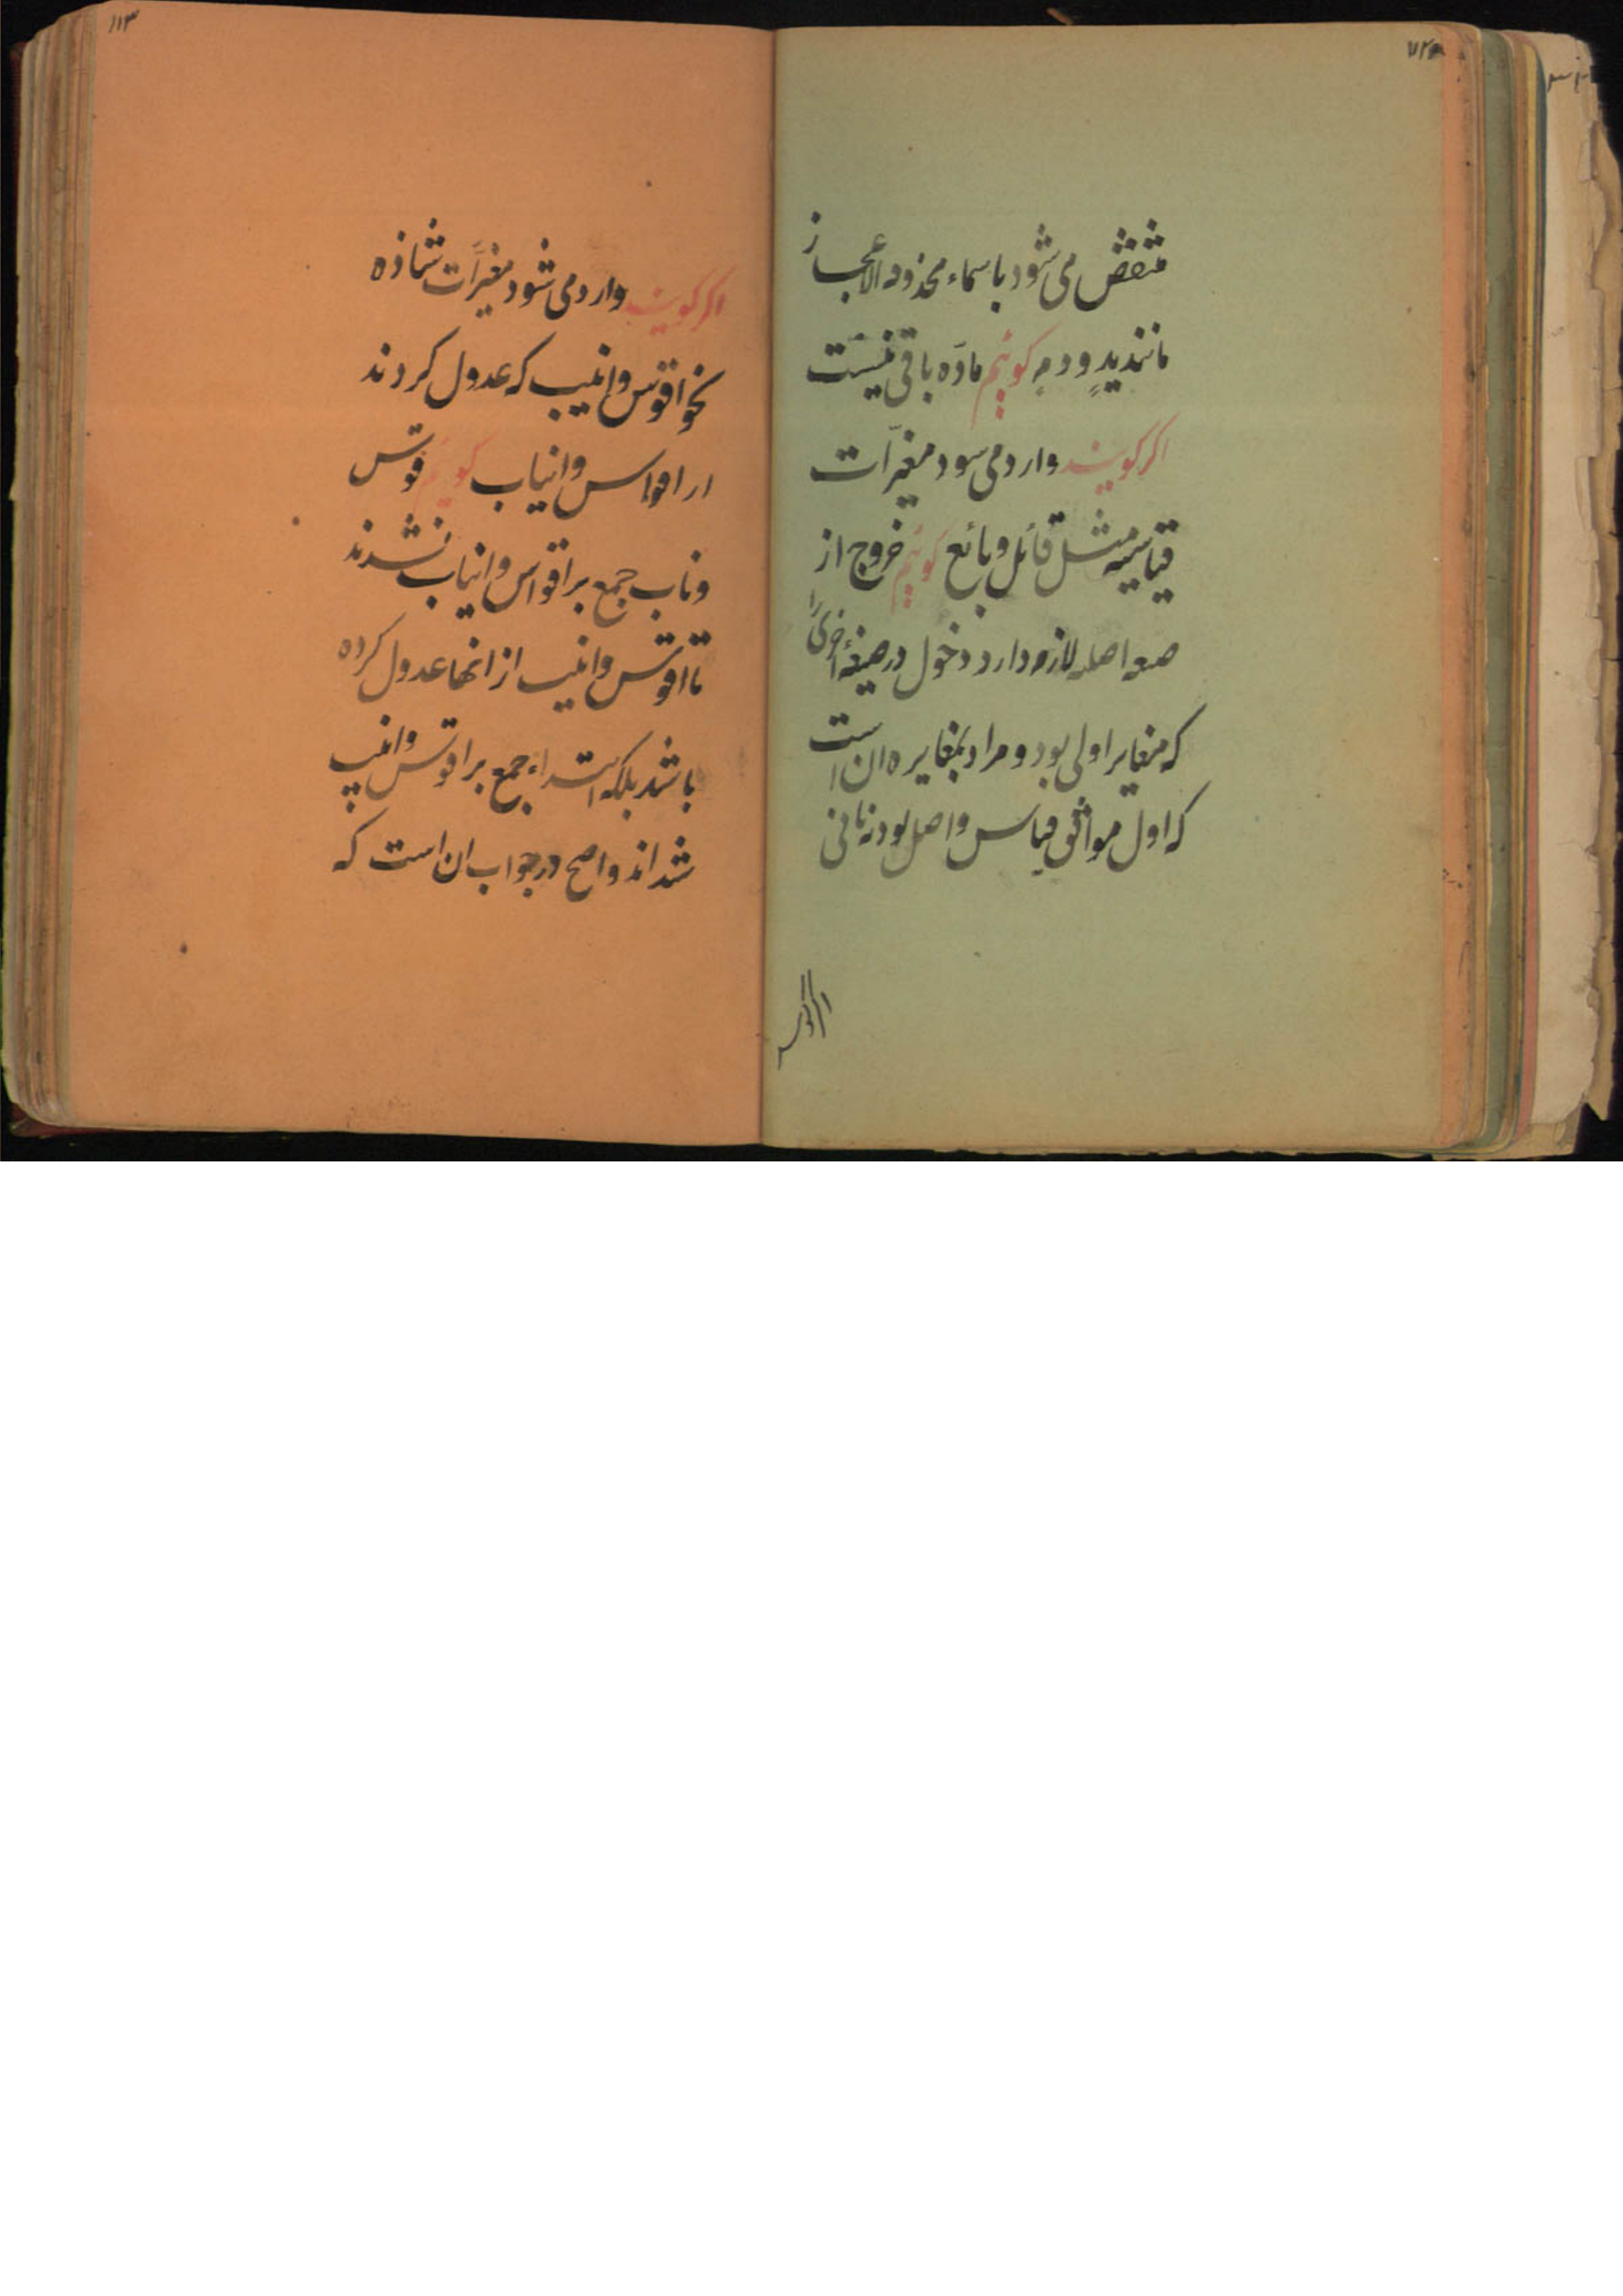 منتقض می شود باسماء محذوفه الاعجاز
مانند یدٍ و دمٍ کوئیم مادّه باقی نیست
اکر کویند وارد می سود مغیّرات
قیاسیه مثل قائل و بائع کوئیم خروج از
صیغه اصلیه لازم دارد دخول در صیغهٔ اخری را
که مغایر اولی بود و مراد بمغایره ان است
که اول موافق قیاس و اصل بود نه ثانی
اکر کویند
۱۱۳
اکر کویند وارد می شود مغیّرات شاذه
نحو اقوس و انیب که عدول کردند
از اقواس و انیاب کوئیم قوس
و ناب جمع بر اقواس و انیاب نشدند
تا اقوس و انیب از انها عدول کرده
باشد بلکه ابتداء جمع بر اقوس و انیب
شد اند و اصح در جواب ان است که